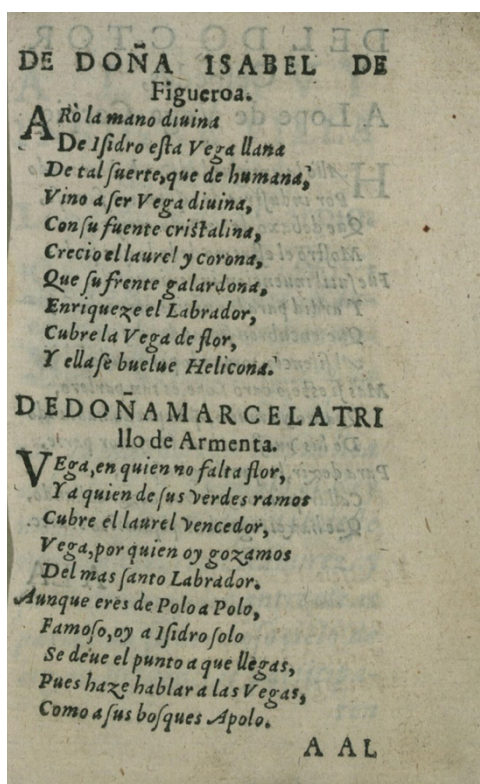 DE DOÑA ISABEL DE
Figueroa.
ARò la mano diuina
De Isidro esta Vega llana
De tal suerte, que de humana,
Vino a ser Vega diuina,
Con su fuente cristalina,
Crecio el laurel y corona,
Que su frente galardona,
Enriqueze el Labrador,
Cubre la Vega de flor,
Y ella se buelue Helicona.
DE DOÑA MARCELA TRI
llo de Armenta.
VEga, en quien no falta flor,
Y a quien de sus verdes ramos
Cubre el laurel vencedor,
Vega, por quien oy gozamos
Del mas santo Labrador.
Aunque eres de Polo a Polo,
Famoso, oy a Isidro solo
Se deue el punto a que llegas,
Pues haze hablar a las Vegas,
Como a sus bosques Apolo.
A AL